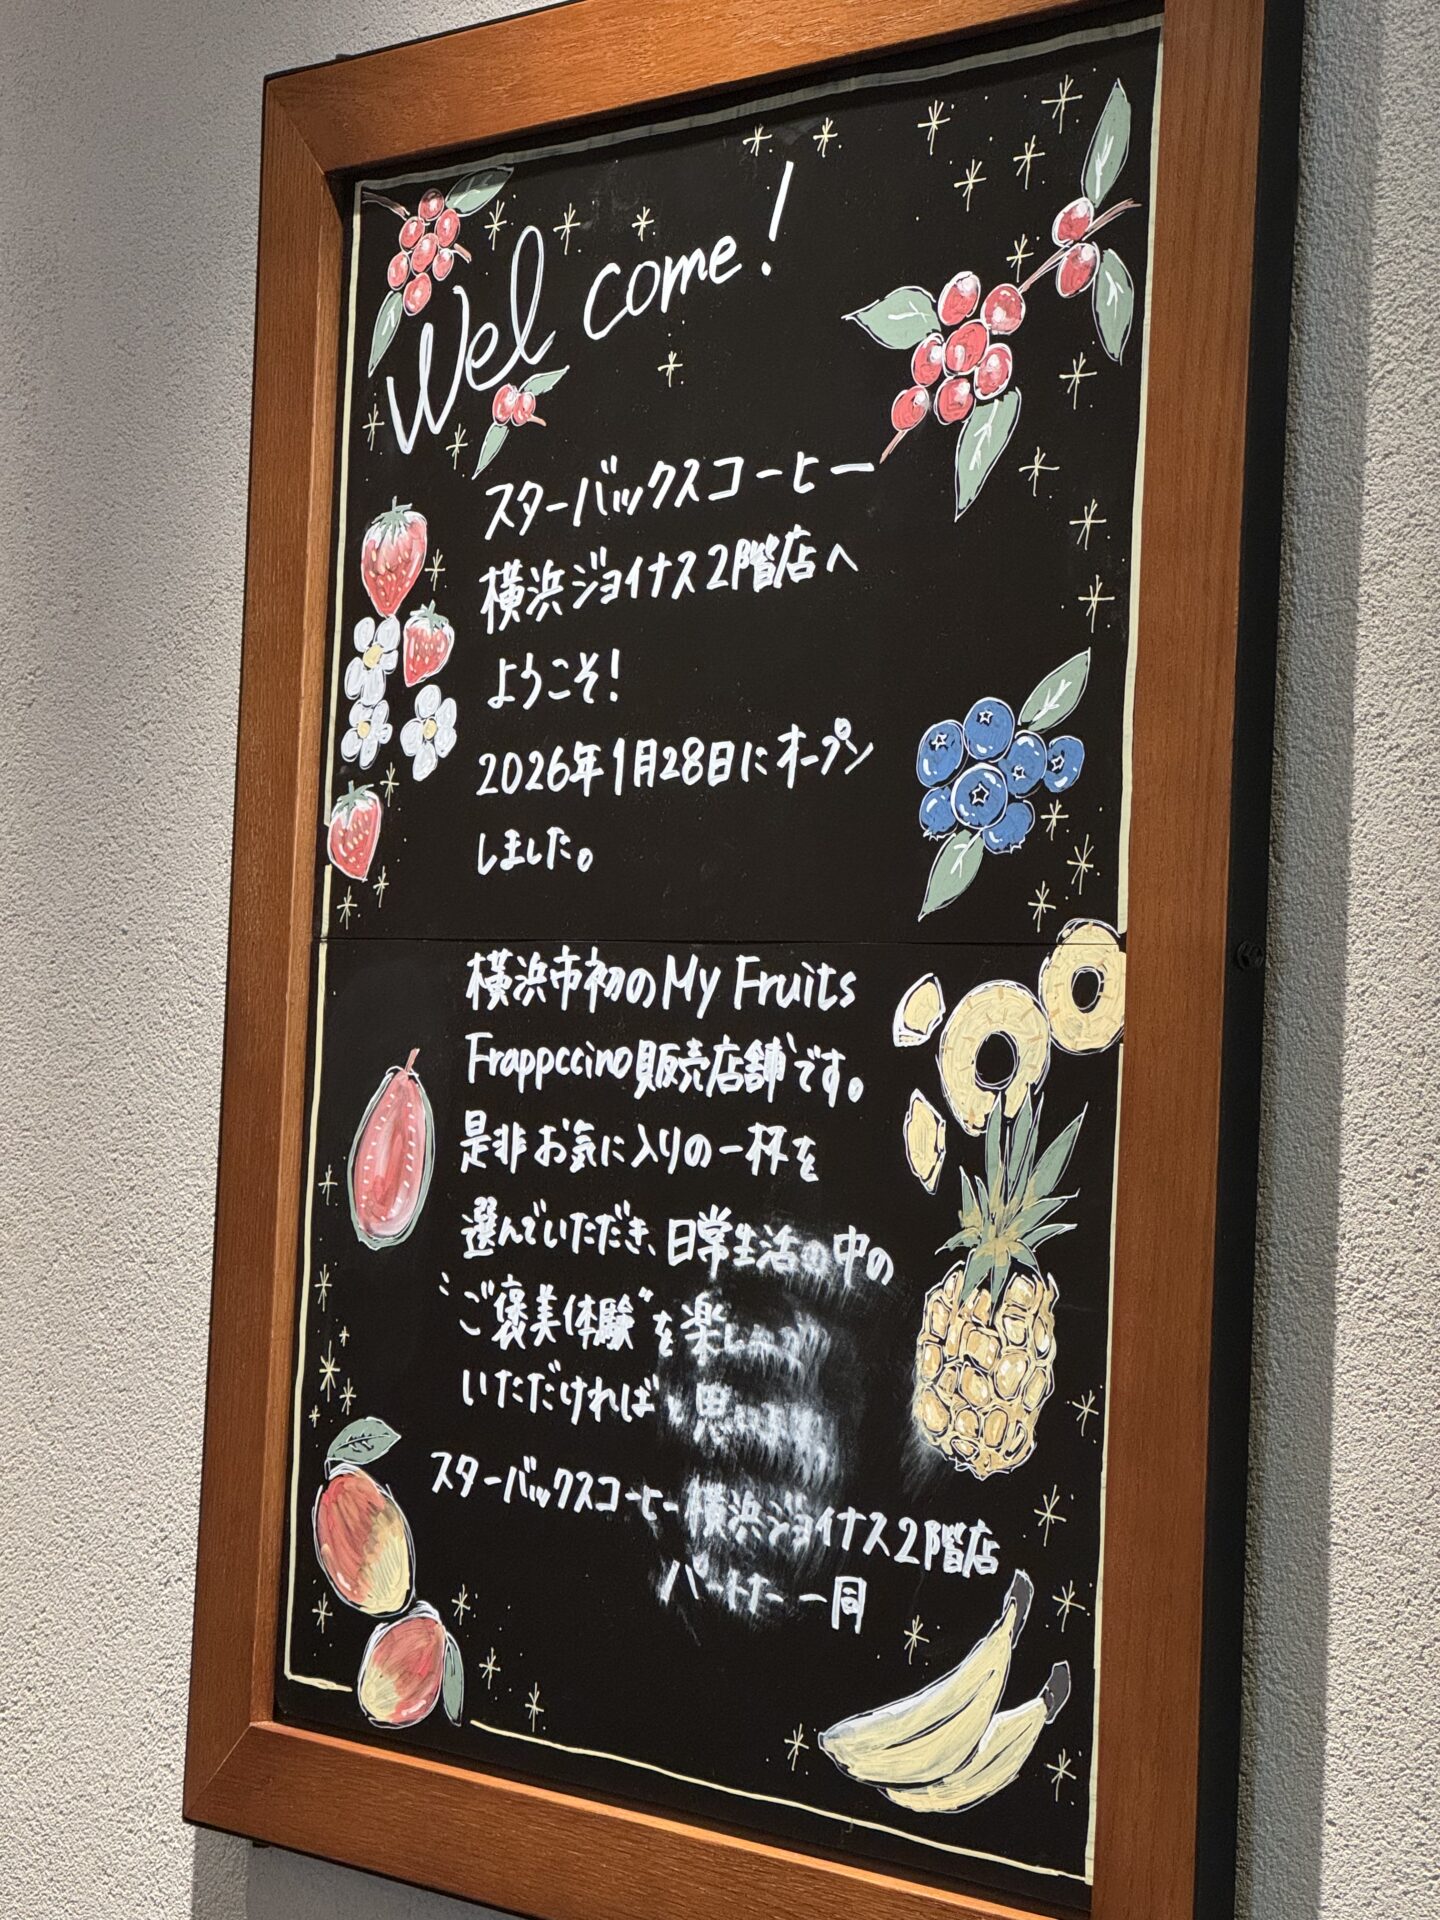 Welcome!
スターバックスコーヒー
横浜ジョイナス2階店へ
ようこそ!
2026年1月28日にオープン
しました。
横浜市初のMy Fruits
Frappccino販売店舗です。
是非お気に入りの一杯を
選んでいただき、日常生活の中の
"ご褒美体験"を楽しんで
いただければと思います。
スターバックスコーヒー横浜ジョイナス2階店
パートナー一同